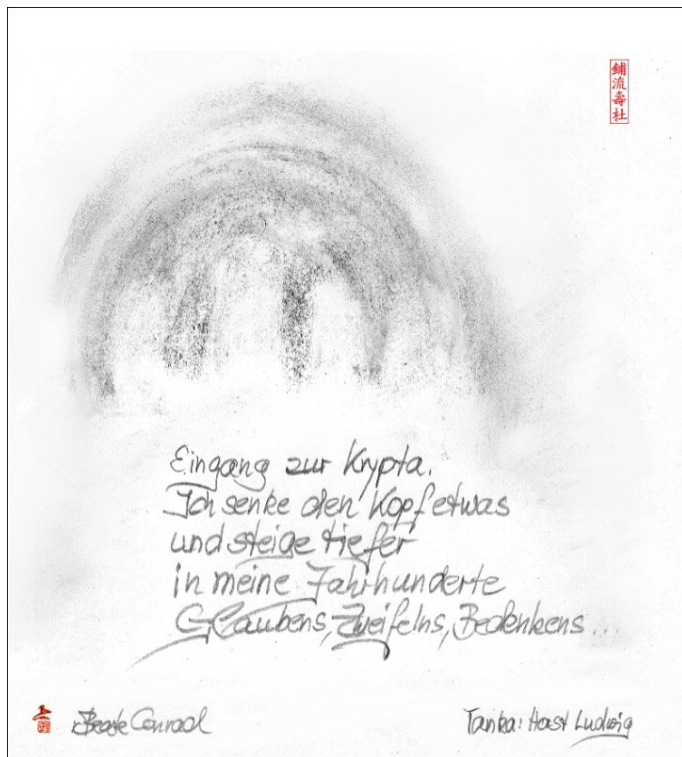 鋪
流
壽
杜
Eingang zur Krypta.
Ich senke den Kopf etwas
und steige tiefer
in meine Jahrhunderte
Glaubens, Zweifelns, Bedenkens...
Beate Conrad
Tanka: Horst Ludwig